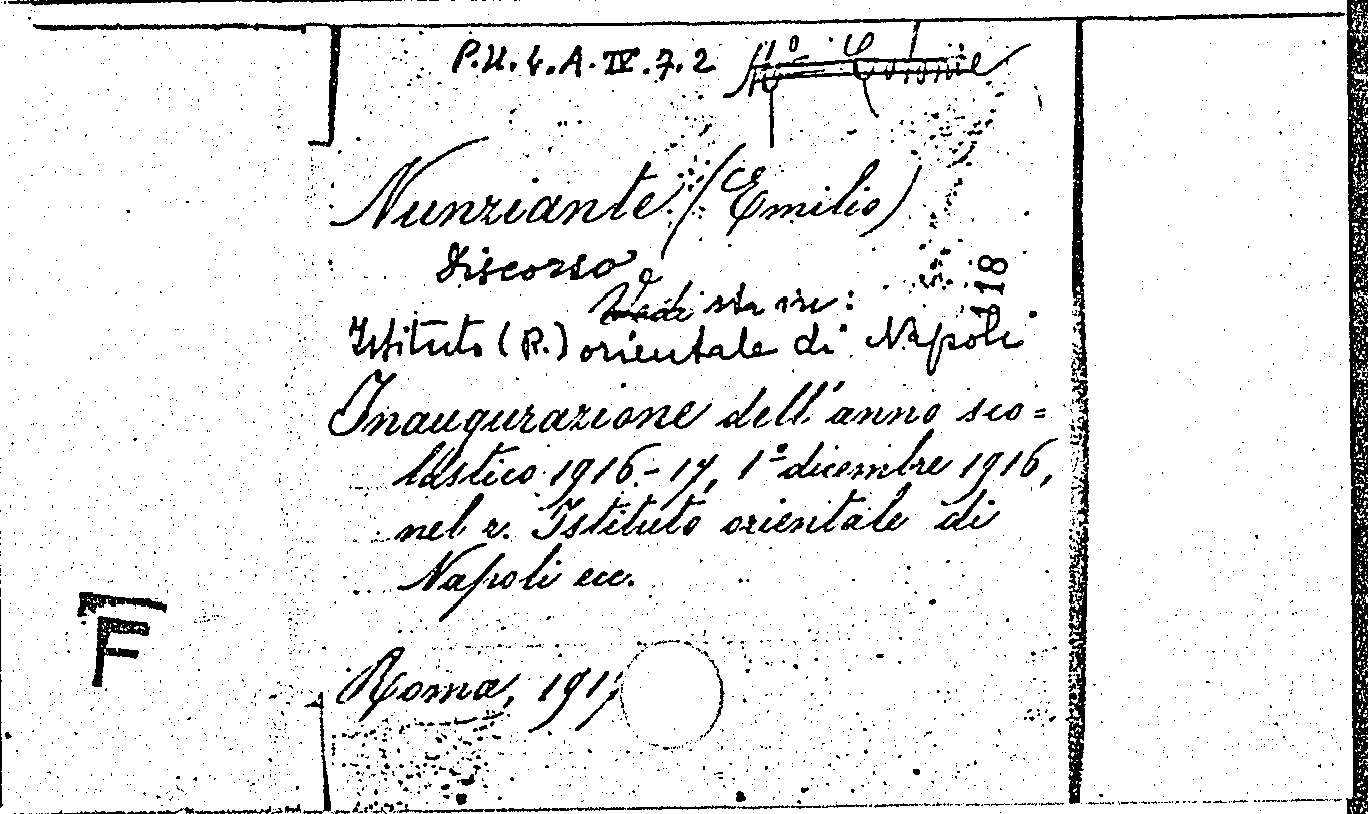 P.U. 4. A. IV. 7. 2
Nunziante (Emilio)
Discorso
Vedi
Istituto (R.) orientale di Napoli
118
Inaugurazione dell'anno sco=
lastico 1916-17, 1º dicembre 1916,
nel r. Istituto orientale di
Napoli ecc.
Roma, 1917
F